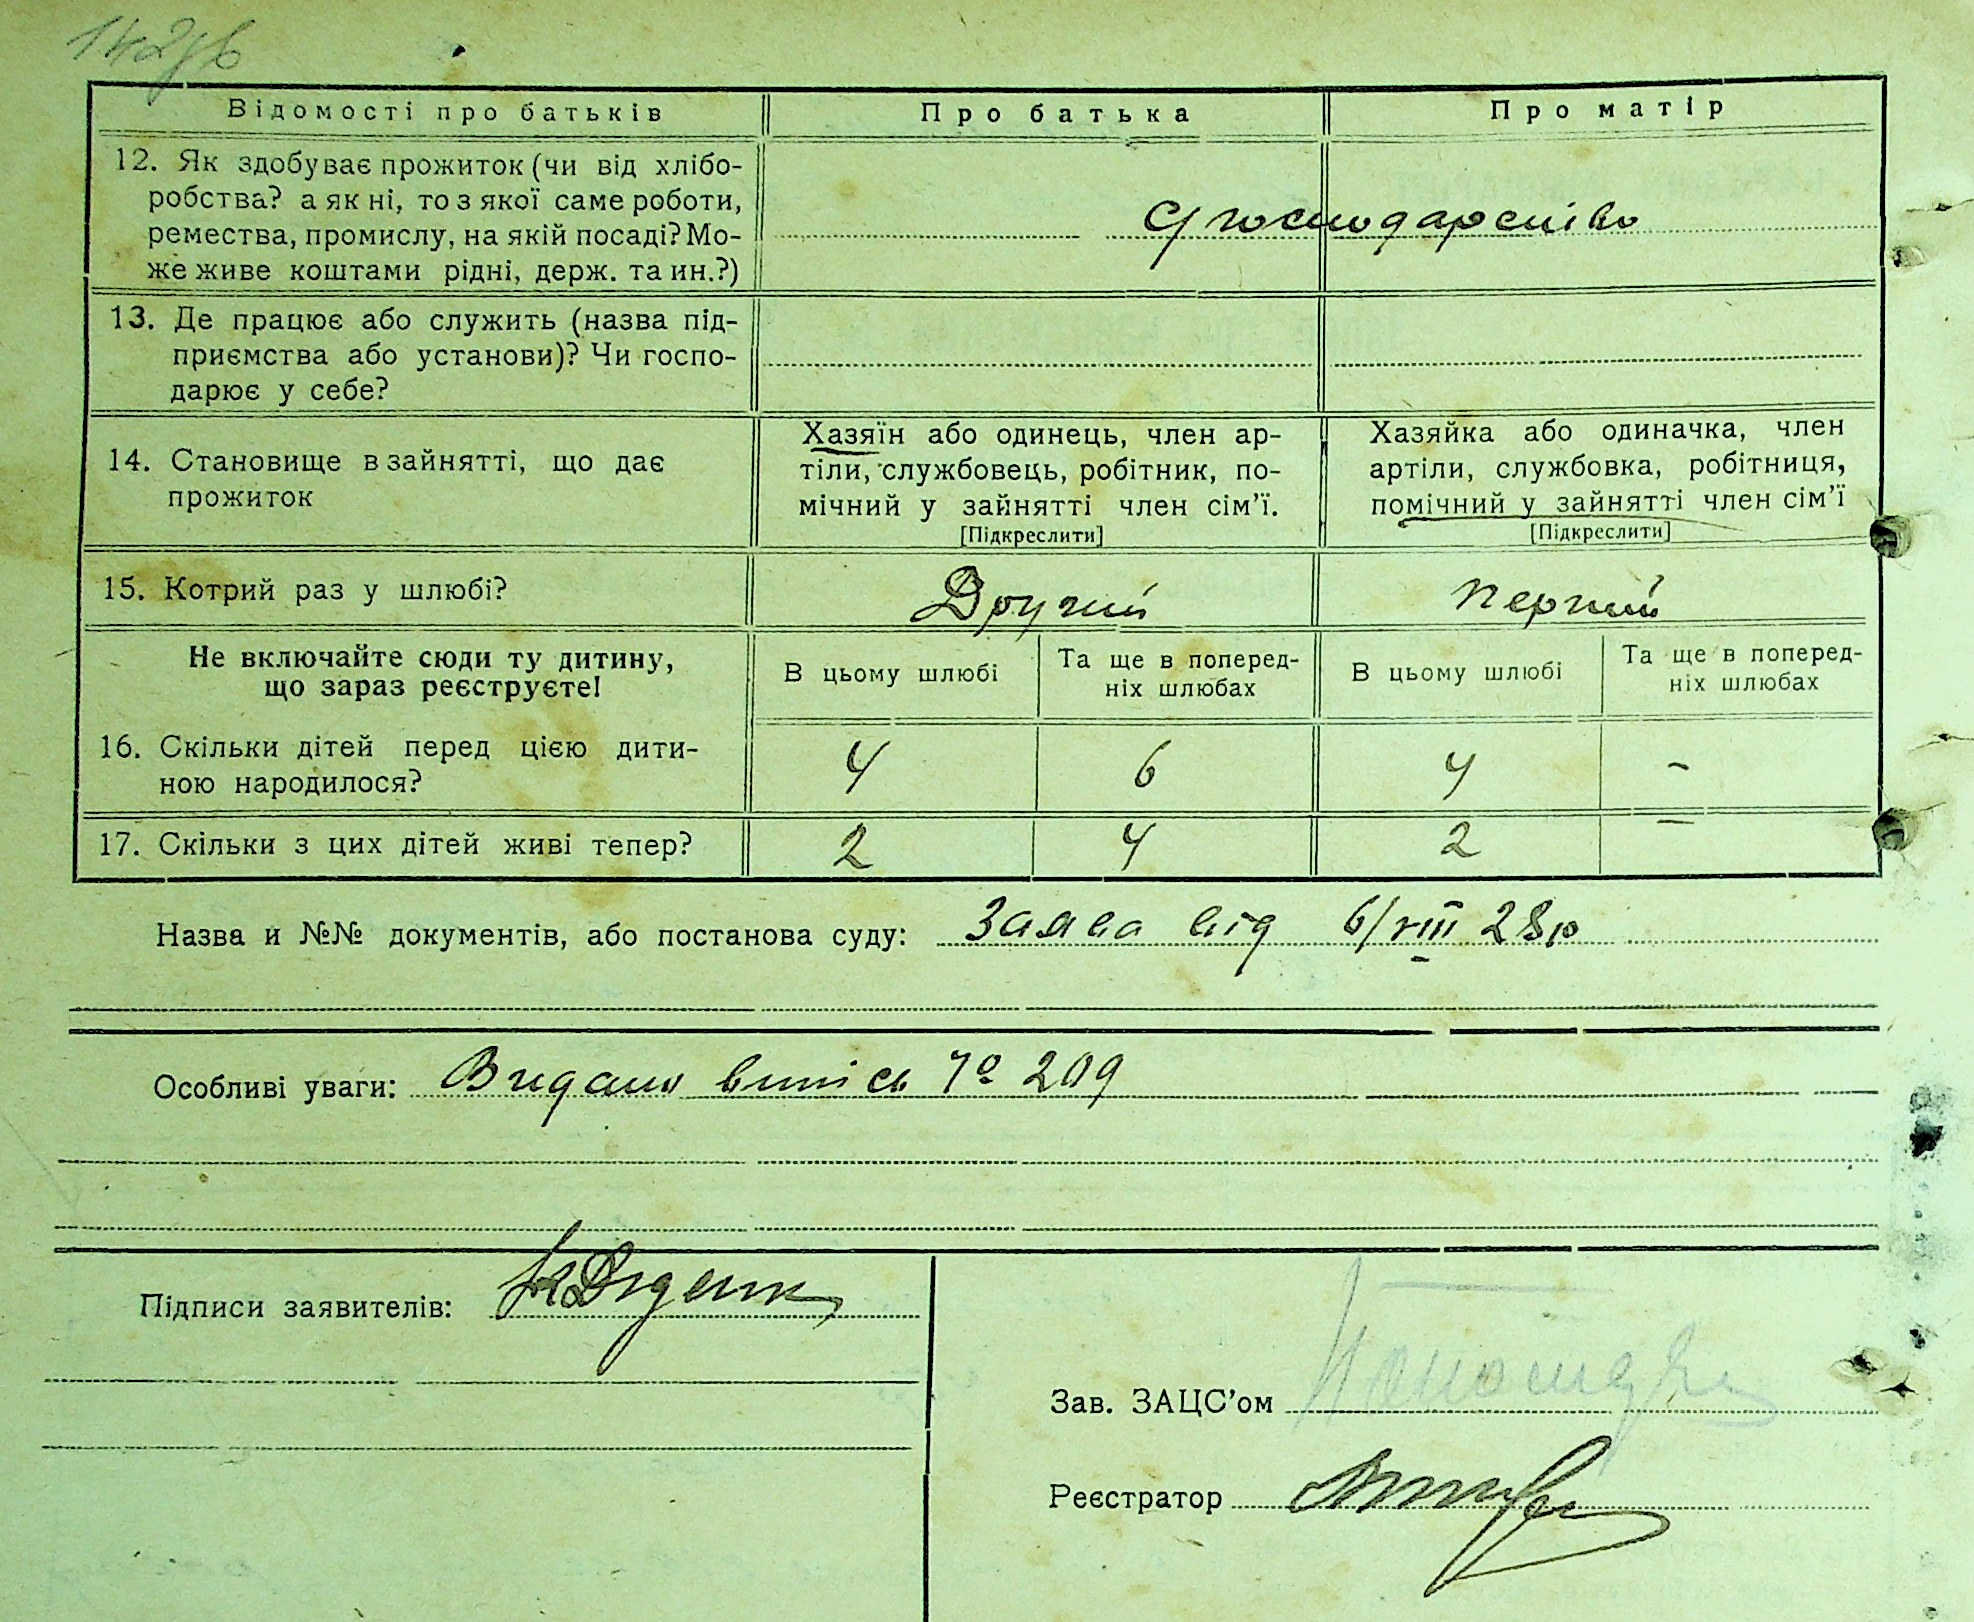 142зв
Відомості про батьків Про батька Про матір
12. Як здобуває прожиток (чи від хлібо-
робства? а як ні, то з якої саме роботи,
ремества, промислу, на якій посаді? Мо-
же живе коштами рідні, держ. та ин.?)
Господарство
13. Де працює або служить (назва під-
приємства або установи)? Чи госпо-
дарює у себе?
14. Становище в зайнятті, що дає
прожиток
Хазяїн або одинець, член ар-
тіли, службовець, робітник, по-
мічний у зайнятті член сім’ї.
[Підкреслити]
Хазяйка або одиначка, член
артіли, службовка, робітниця,
помічний у зайнятті член сім’ї
[Підкреслити]
15. Котрий раз у шлюбі? Другий перший
Не включайте сюди ту дитину,
що зараз реєструєте!
В цьому шлюбі
Та ще в поперед-
ніх шлюбах
В цьому шлюбі
Та ще в поперед-
ніх шлюбах
16. Скільки дітей перед цією дити-
ною народилося?
4 6 4 –
17. Скільки з цих дітей живі тепер? 2 4 2 –
Назва и №№ документів, або постанова суду: Заява від 6/VIII 28р
Особливі уваги: Видано випись № 209
Підписи заявителів:
Зав. ЗАЦС’ом
Реєстратор